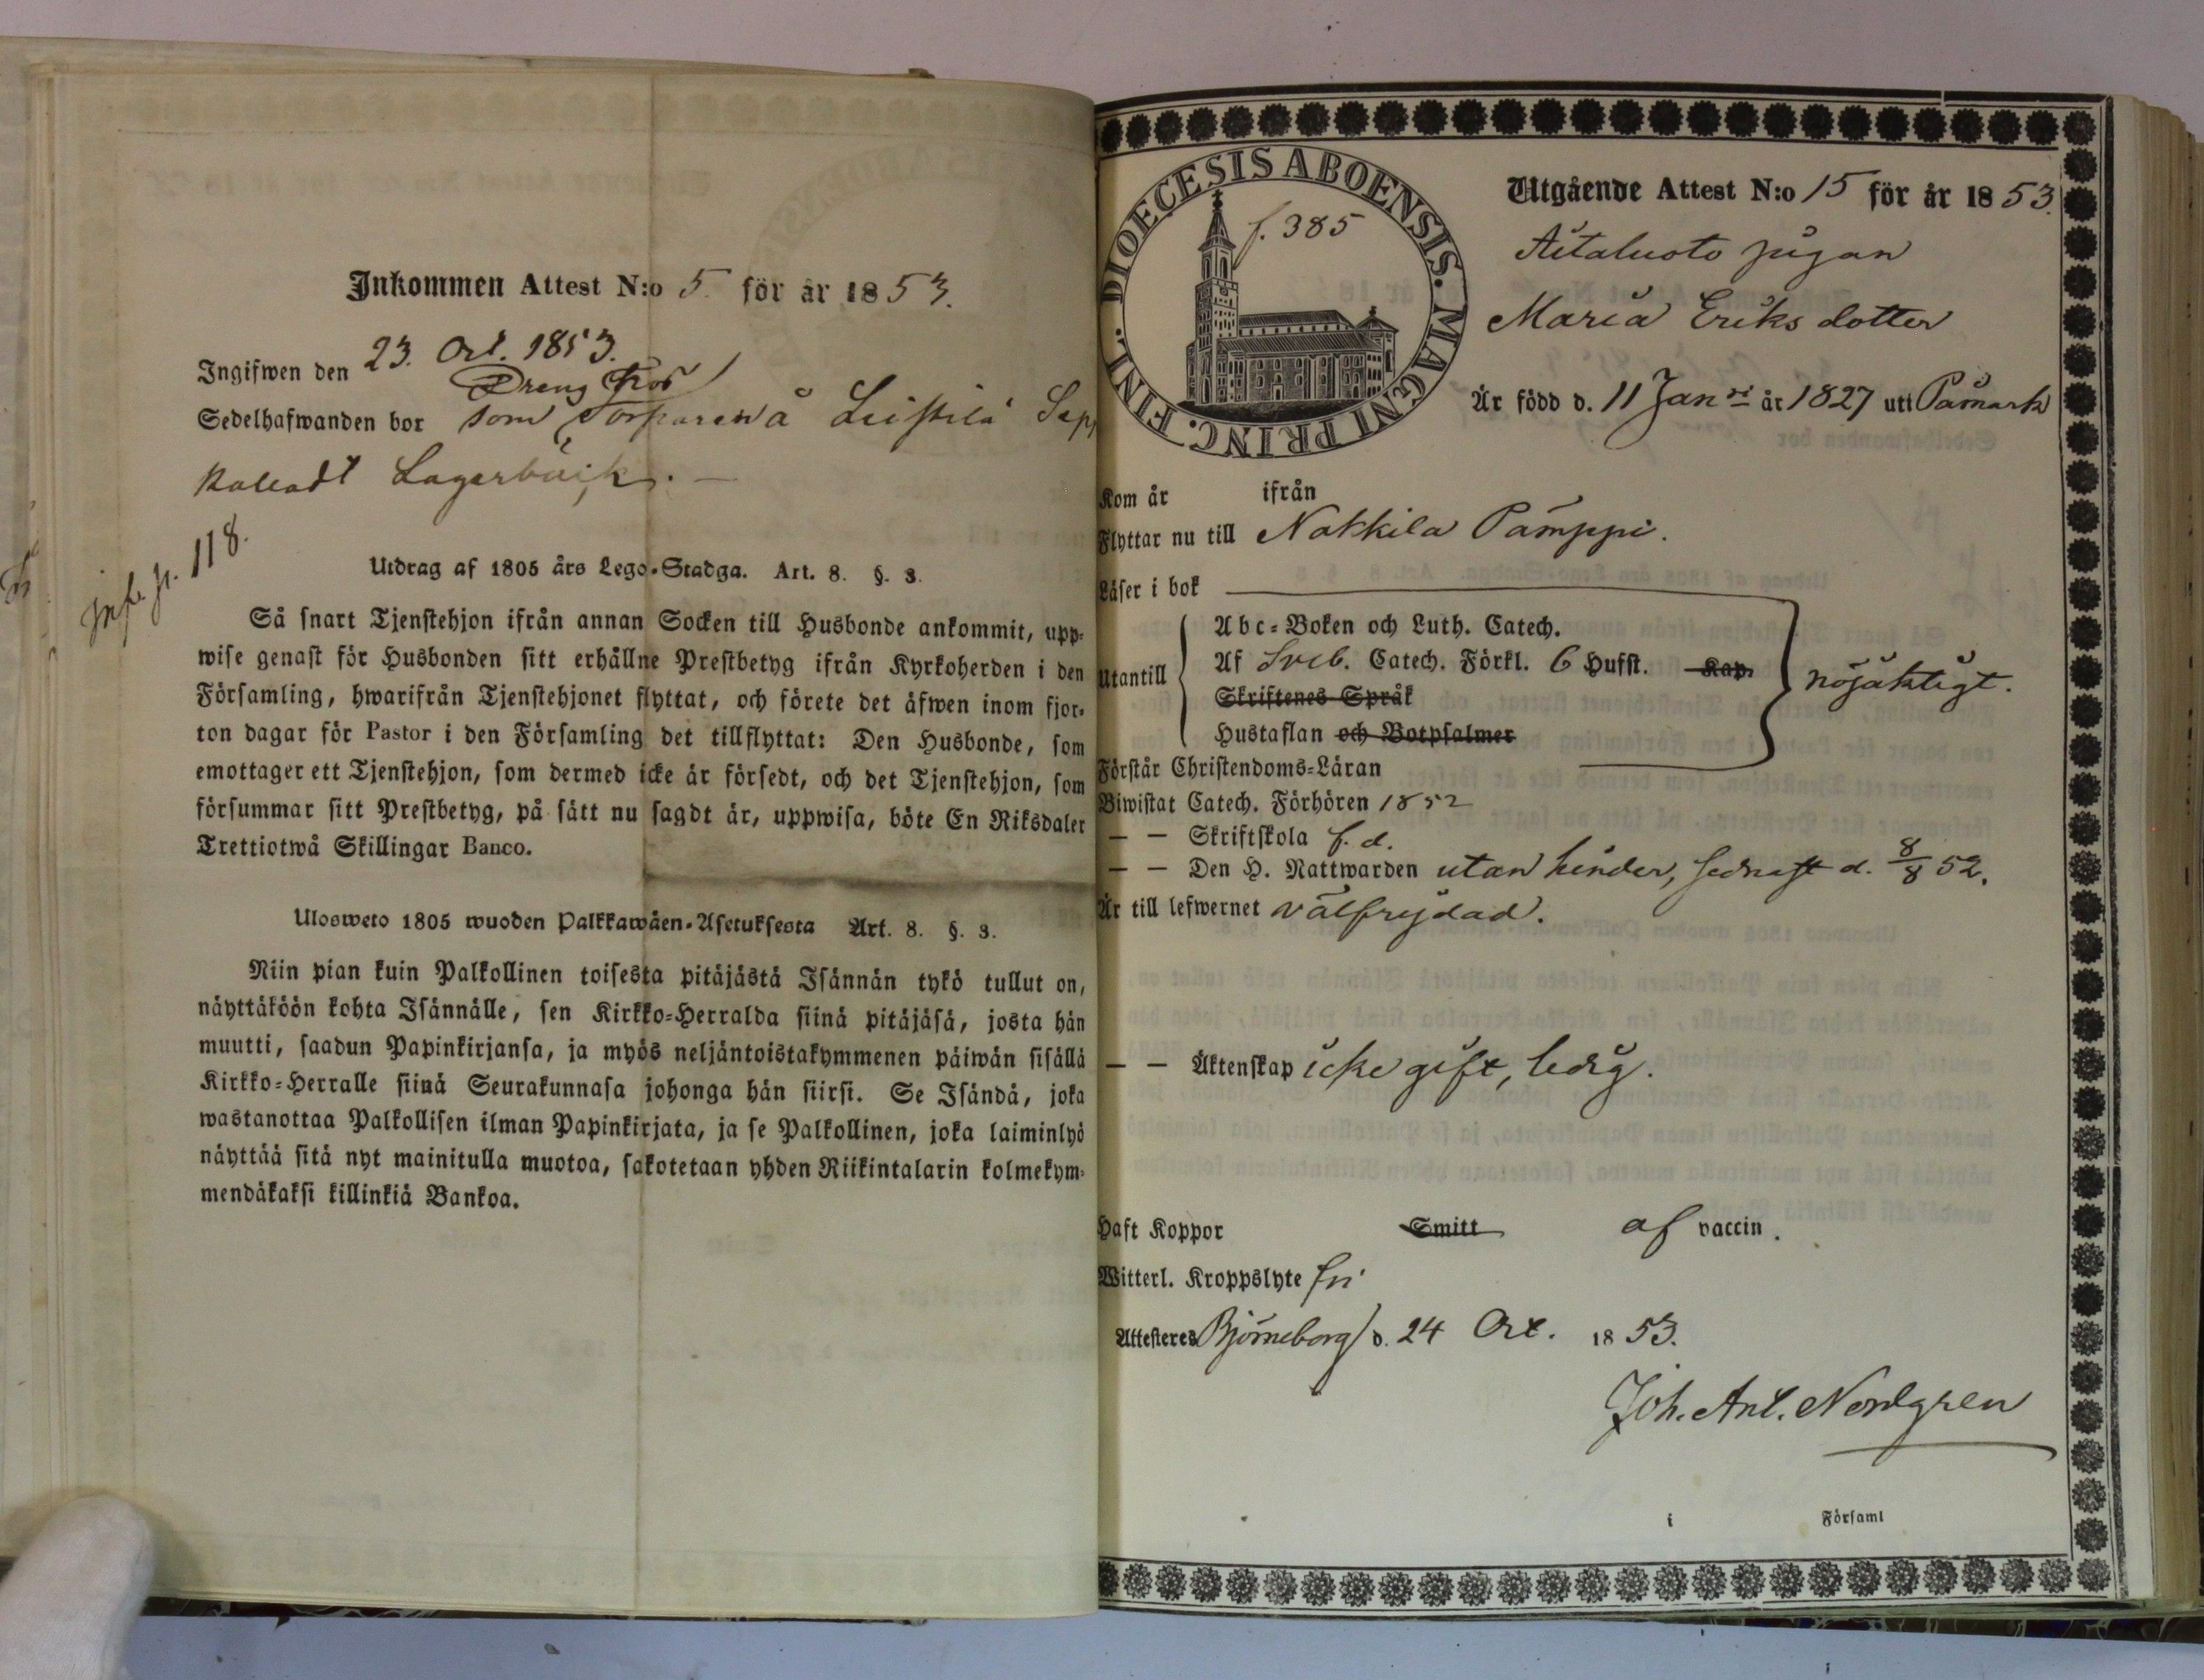 Inkommen Attest N:o 5. för år 1853.
Ingifwen den 23. Oct. 1853.
Dreng
Sedelhafwanden bor som Torparen å Leistilä
kalladt Lagerbäck. —
118.
Utdrag af 1805 års Lego-Stadga. Art. 8. §. 3.
Så snart Tjenstehjon ifrån annan Socken till Husbonde ankommit, upp-
wise genast för Husbonden sitt erhållne Prestbetyg ifrån Kyrkoherden i den
Församling, hwarifrån Tjenstehjonet flyttat, och förete det äfwen inom fjor-
ton dagar för Pastor i den Församling det tillflyttat: Den Husbonde, som
emottager ett Tjenstehjon, som dermed icke är försedt, och det Tjenstehjon, som
försummar sitt Prestbetyg, på sätt nu sagdt är, uppwisa, böte En Riksdaler
Trettiotwå Skillingar Banco.
Ulosweto 1805 wuoden Palkkawäen-Asetuksesta Art. 8. §. 3.
Niin pian kuin Palkollinen toisesta pitäjästä Isännän tykö tullut on,
näyttäköön kohta Isännälle, sen Kirkko-Herralda siinä pitäjäsä, josta hän
muutti, saadun Papinkirjansa, ja myös neljäntoistakymmenen päiwän sisällä
Kirkko-Herralle siinä Seurakunnasa johonga hän siirsi. Se Isändä, joka
wastanottaa Palkollisen ilman Papinkirjata, ja se Palkollinen, joka laiminlyö
näyttää sitä nyt mainitulla muotoa, sakotetaan yhden Riikintalarin kolmekym-
mendäkaksi killinkiä Bankoa.
DIOECESIS ABOENSIS. MAGNI PRINC. FINL.
f. 385
Utgående Attest N:o 15 för år 1853.
Aitaluoto pigan
Maria Eriks dotter
Är född d. 11 Janri år 1827 uti Påmark
Kom år ifrån
Flyttar nu till Nakkila Pamppi.
Läser i bok
Utantill
Abc-Boken och Luth. Catech.
Af Sveb. Catech. Förkl. 6 Hufst. Kap.
Skriftenes Språk
Hustaflan och Botpsalmer
nöjaktigt.
Förstår Christendoms-Läran
Biwistat Catech. Förhören 1852
— — Skriftskola f. d.
— — Den H. Nattwarden utan hinder, sednast d. 8/8 52.
Är till lefwernet välfrejdad.
— — Äktenskap icke gift, ledig.
Haft Koppor Smitt af vaccin.
Witterl. Kroppslyte fri
Attesteres Björneborg d. 24 Oct. 1853.
Joh. Ant. Nordgren
i Församl